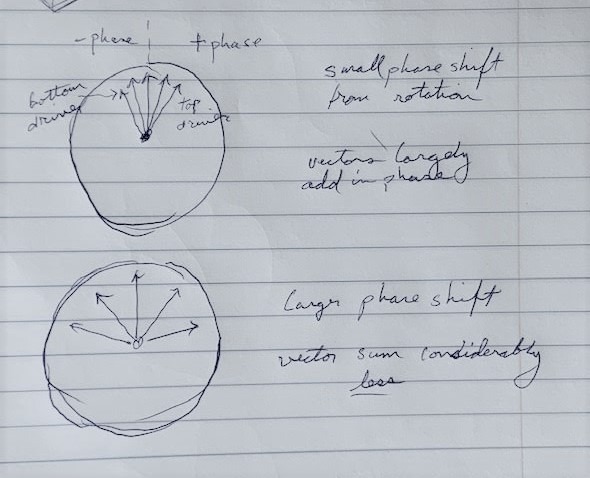 - phase
+ phase
bottom
driver
top
driver
small phase shift
from rotation
vectors largely
add in phase
larger phase shift
vector sum considerably
less